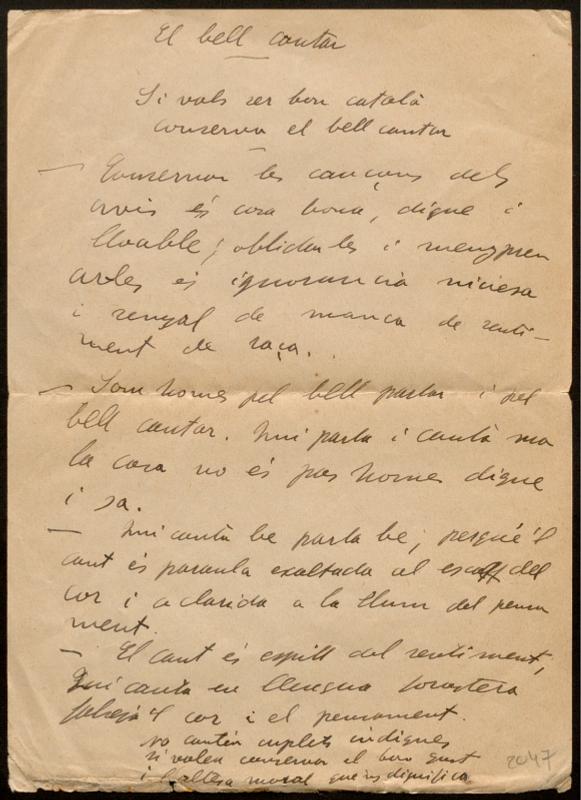 El bell cantar
Si vols ser bon català
conserva el bell cantar
— Conservar les cançons dels
avis és cosa bona, digne i
lloable; oblidarles i menyspre
arles és ignorancia niciesa
i senyal de manca de senti-
ment de raça.
— Som homes pel bell parlar i pel
bell cantar. Qui parla i canta ma
la cosa no és pas home digne
i sa.
— Qui canta be parla be, perqué'l
cant és paraula exaltada al escalf del
cor i aclarida a la llum del pensa
ment.
— El cant és espill del sentiment,
Qui canta en llengua forastera
falseja'l cor i el pensament.
No cantin cuplets indignes
si volen conservar el bon gust
i l'altesa moral que'ns dignifica
2047